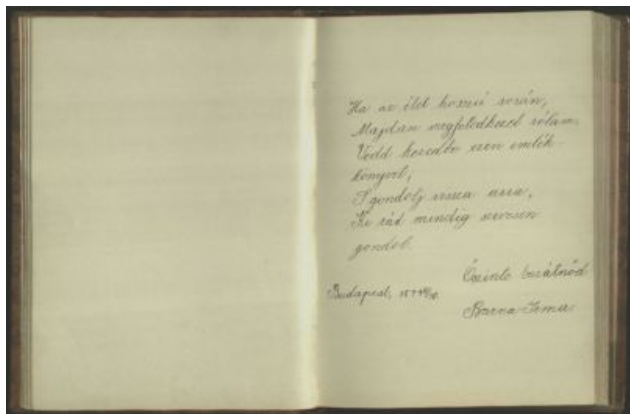 Ha az élet hosszú során,
Majdan megfeledkezel rólam,
Vedd kezedbe ezen emlék-
könyvet,
S gondolj vissza arra,
Ki rád mindig szívesen
gondol.
Őszinte barátnőd
Budapest,
Barna